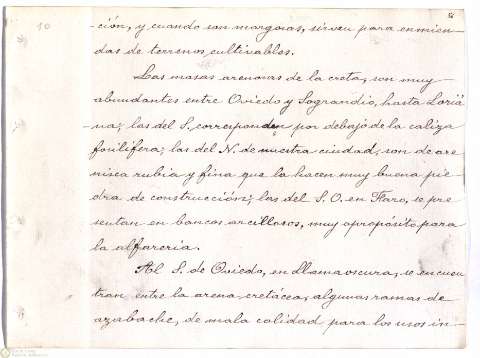 10
ción, y cuando son margosas, sirven para enmien-
das de terrenos cultivables.
Las masas arenosas de la creta, son muy
abundantes entre Oviedo y Sograndio, hasta Loriá-
na; las del S. corresponden por debajo de la caliza
fosilífera; las del N. de nuestra ciudad, son de are
nisca rubia y fina que la hacen muy buena pie
dra de construcción; las del S. O. en Faro, se pre
sentan en bancos arcillosos, muy apropósito para
la alfarería.
Al S. de Oviedo, en Llamaoscura, se encuen
tran, entre la arena cretácea, algunas ramas de
azabache, de mala calidad para los usos in-